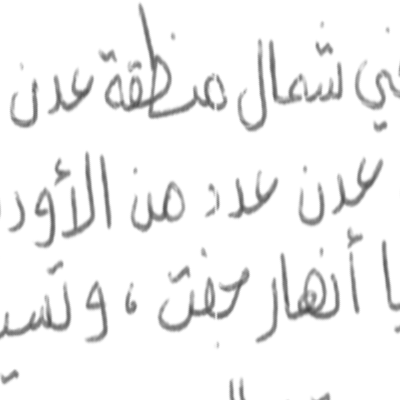 في شمال منطقة عدن
عدن عدد من الأود
يا أنهار جفت ، وتسي